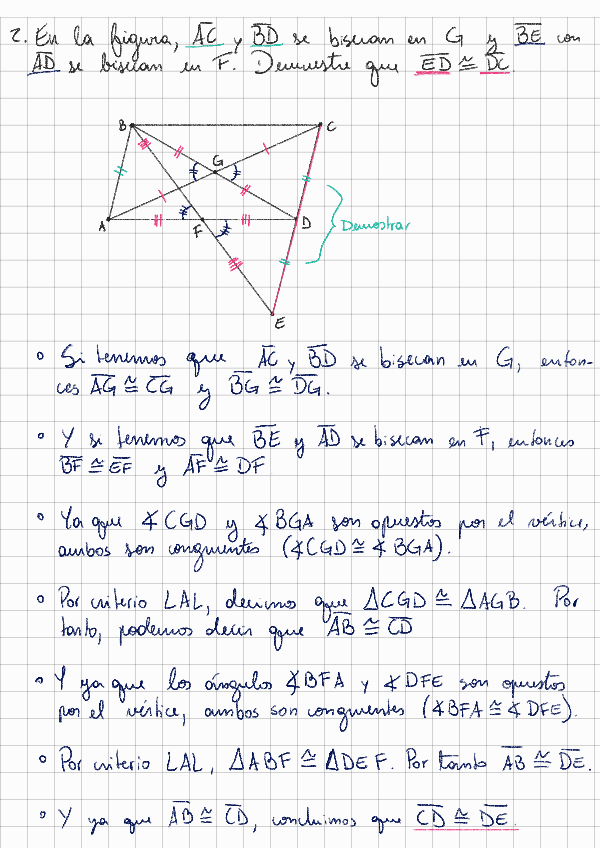 2. En la figura, AC y BD se bisecan en G y BE con
AD se bisecan en F. Demuestre que ED ≅ DC.
B
C
G
A
F
D
Demostrar
E
° Si tenemos que AC y BD se bisecan en G, enton-
ces AG ≅ CG y BG ≅ DG.
° Y si tenemos que BE y AD se bisecan en F, entonces
BF ≅ EF y AF ≅ DF
° Ya que ∡CGD y ∡BGA son opuestos por el vértice,
ambos son congruentes (∡CGD ≅ ∡BGA).
° Por criterio LAL, decimos que △CGD ≅ △AGB. Por
tanto, podemos decir que AB ≅ CD
° Y ya que los ángulos ∡BFA y ∡DFE son opuestos
por el vértice, ambos son congruentes (∡BFA ≅ ∡DFE).
° Por criterio LAL, △ABF ≅ △DEF. Por tanto AB ≅ DE.
° Y ya que AB ≅ CD, concluimos que CD ≅ DE.